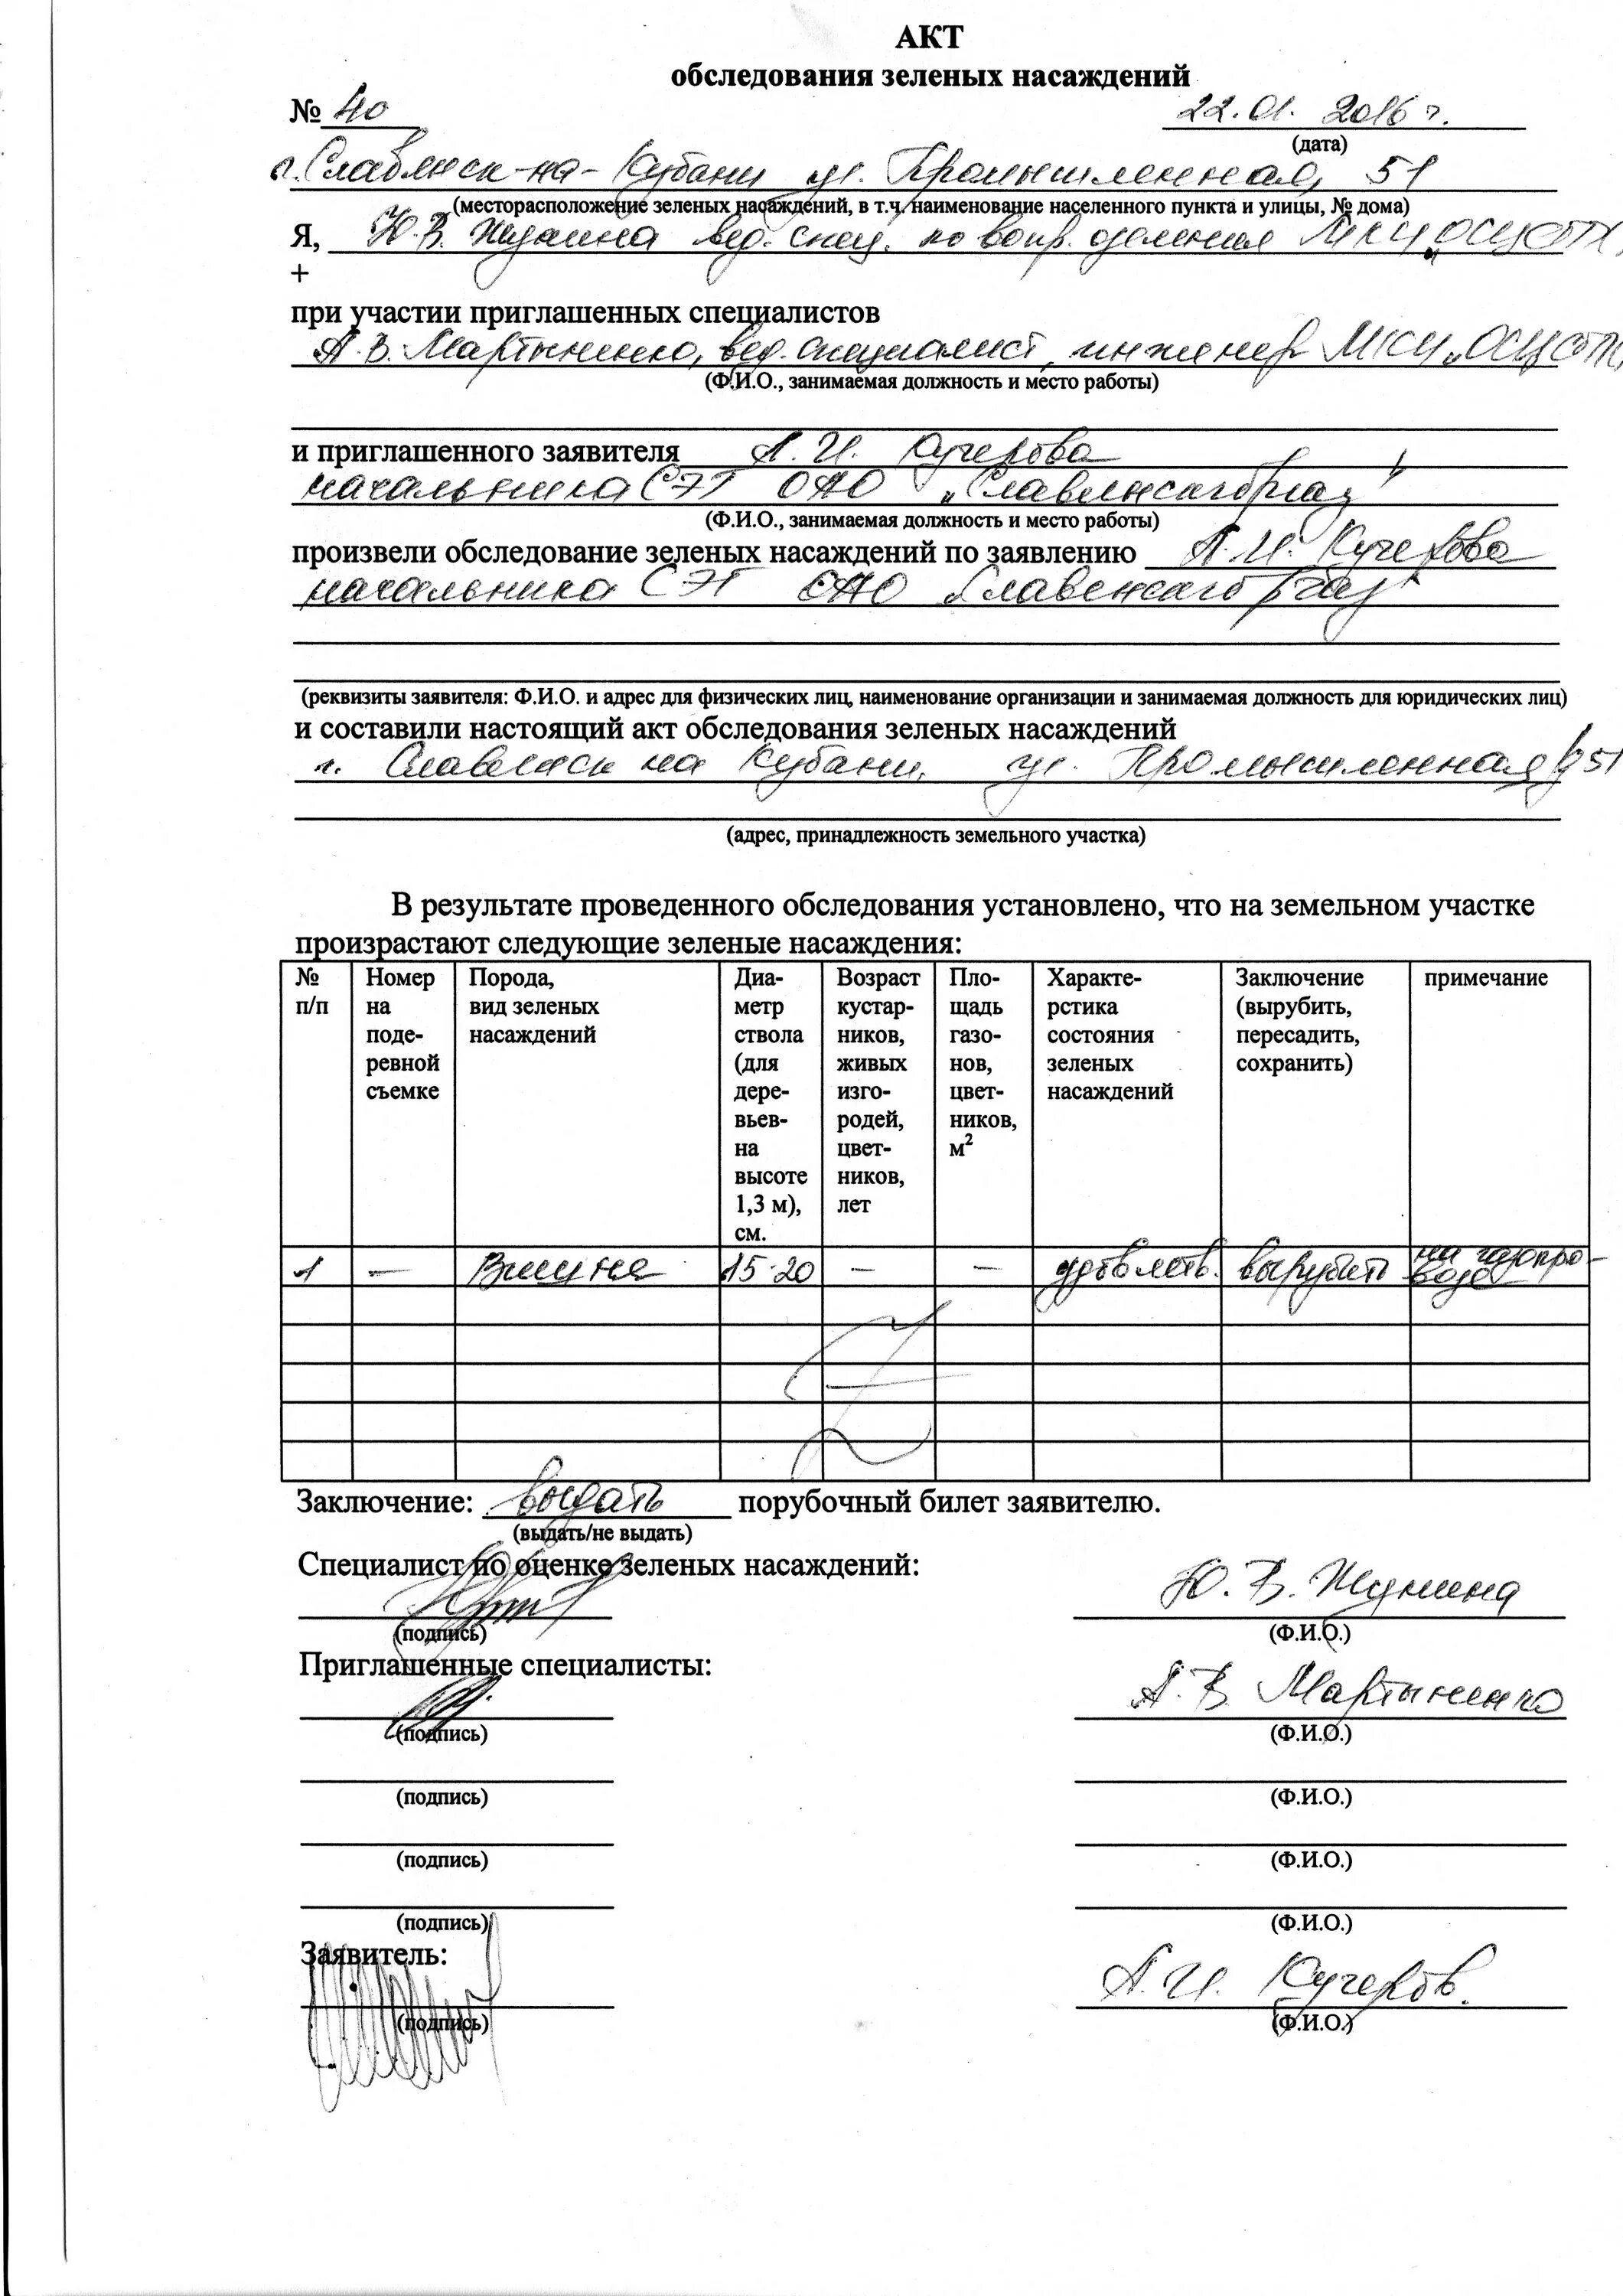 АКТ
обследования зеленых насаждений
№ 40 22.01. 2016 г.
(дата)
г. Славянск-на-Кубани ул. Промышленная, 51
(месторасположение зеленых насаждений, в т.ч. наименование населенного пункта и улицы, № дома)
Я, Ю.В. Жунина вед. спец. по вопр. озеленения МКУ „ОСЦСТК
+
при участии приглашенных специалистов
А.В. Мартыненко, вед. специалист, инженер МКУ „ОСЦСТК
(Ф.И.О., занимаемая должность и место работы)
и приглашенного заявителя А.И. Кучерова
начальника СЭГ ОАО „Славянскгоргаз"
(Ф.И.О., занимаемая должность и место работы)
произвели обследование зеленых насаждений по заявлению А.И. Кучерова
начальника СЭГ ОАО „Славянскгоргаз"
(реквизиты заявителя: Ф.И.О. и адрес для физических лиц, наименование организации и занимаемая должность для юридических лиц)
и составили настоящий акт обследования зеленых насаждений
г. Славянск на Кубани, ул. Промышленная, 51
(адрес, принадлежность земельного участка)
В результате проведенного обследования установлено, что на земельном участке
произрастают следующие зеленые насаждения:
№ п/п Номер на поде- ревной съемке Порода, вид зеленых насаждений Диа- метр ствола (для дере- вьев- на высоте 1,3 м), см. Возраст кустар- ников, живых изго- родей, цвет- ников, лет Пло- щадь газо- нов, цвет- ников, м² Характе- рстика состояния зеленых насаждений Заключение (вырубить, пересадить, сохранить) примечание
1 — Вишня 15-20 — — удовлетв. вырубить на газопро- воде
Заключение: выдать порубочный билет заявителю.
(выдать/не выдать)
Специалист по оценке зеленых насаждений:
Ю.В. Жунина
(подпись) (Ф.И.О.)
Приглашенные специалисты:
А.В. Мартыненко
(подпись) (Ф.И.О.)
(подпись) (Ф.И.О.)
(подпись) (Ф.И.О.)
(подпись) (Ф.И.О.)
Заявитель:
А.И. Кучеров.
(подпись) (Ф.И.О.)